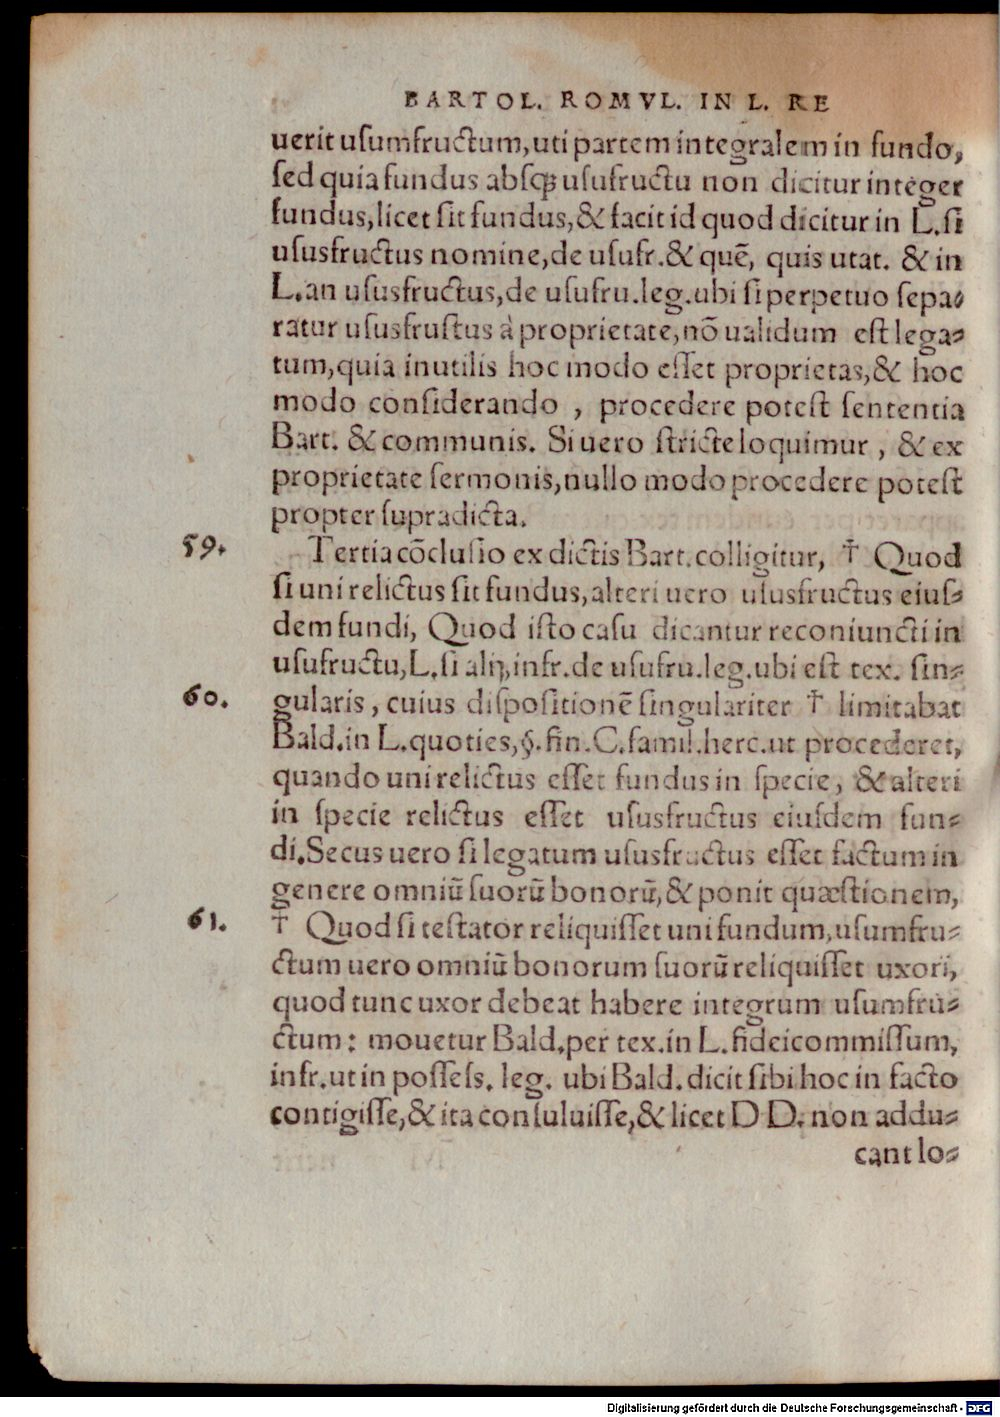 BARTOL. ROMVL. IN L. RE
uerit usumfructum, uti partem integralem in fundo,
sed quia fundus absq; usufructu non dicitur integer
fundus, licet sit fundus, & facit id quod dicitur in L. si
ususfructus nomine, de usufr. & quē, quis utat. & in
L. an ususfructus, de usufru. leg. ubi si perpetuo sepa-
ratur ususfrustus à proprietate, nō ualidum est lega-
tum, quia inutilis hoc modo esset proprietas, & hoc
modo considerando, procedere potest sententia
Bart. & communis. Si uero stricte loquimur, & ex
proprietate sermonis, nullo modo procedere potest
propter supradicta.
59. Tertia cōclusio ex dictis Bart. colligitur, † Quod
si uni relictus sit fundus, alteri uero ususfructus eius-
dem fundi, Quod isto casu dicantur reconiuncti in
usufructu, L. si aliꝗ, infr. de usufru. leg. ubi est tex. sin-
60. gularis, cuius dispositionē singulariter † limitabat
Bald. in L. quoties, §. fin. C. famil. herc. ut procederet,
quando uni relictus esset fundus in specie, & alteri
in specie relictus esset ususfructus eiusdem fun-
di. Secus uero si legatum ususfructus esset factum in
genere omniū suorū bonorū, & ponit quæstionem,
61. † Quod si testator reliquisset uni fundum, usumfru-
ctum uero omniū bonorum suorū reliquisset uxori,
quod tunc uxor debeat habere integrum usumfru-
ctum: mouetur Bald. per tex. in L. fideicommissum,
infr. ut in possess. leg. ubi Bald. dicit sibi hoc in facto
contigisse, & ita consuluisse, & licet DD. non addu-
cant lo-
Digitalisierung gefördert durch die Deutsche Forschungsgemeinschaft - DFG